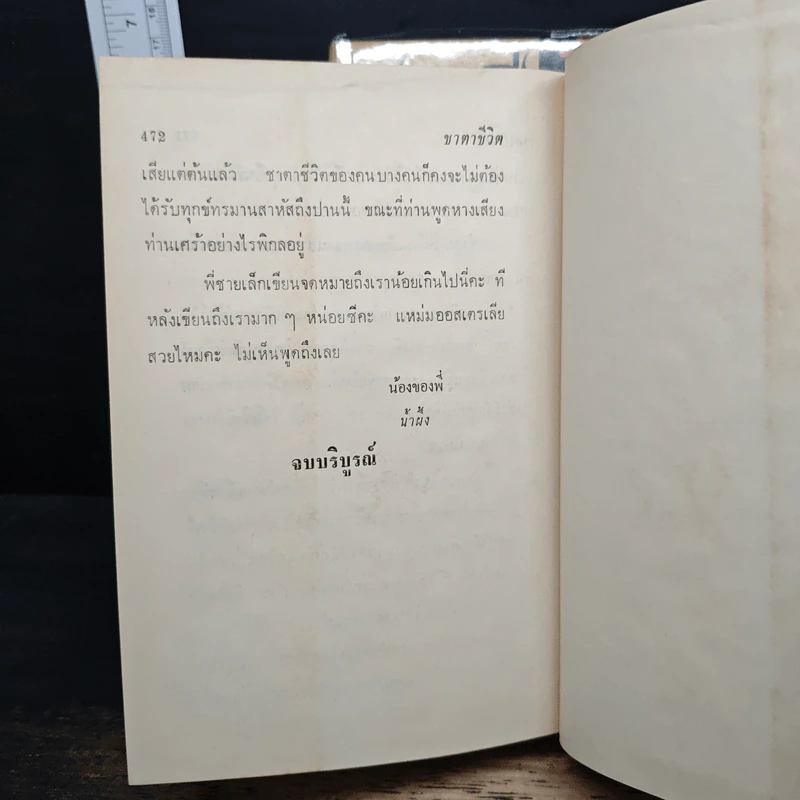 472 ชาตาชีวิต
เสียแต่ต้นแล้ว ชาตาชีวิตของคนบางคนก็คงจะไม่ต้อง
ได้รับทุกข์ทรมานสาหัสถึงปานนี้ ขณะที่ท่านพูดหางเสียง
ท่านเศร้าอย่างไรพิกลอยู่
พี่ชายเล็กเขียนจดหมายถึงเราน้อยเกินไปนี่คะ ที
หลังเขียนถึงเรามาก ๆ หน่อยซีคะ แหม่มออสเตรเลีย
สวยไหมคะ ไม่เห็นพูดถึงเลย
น้องของพี่
น้ำผึ้ง
จบบริบูรณ์
7
18
17